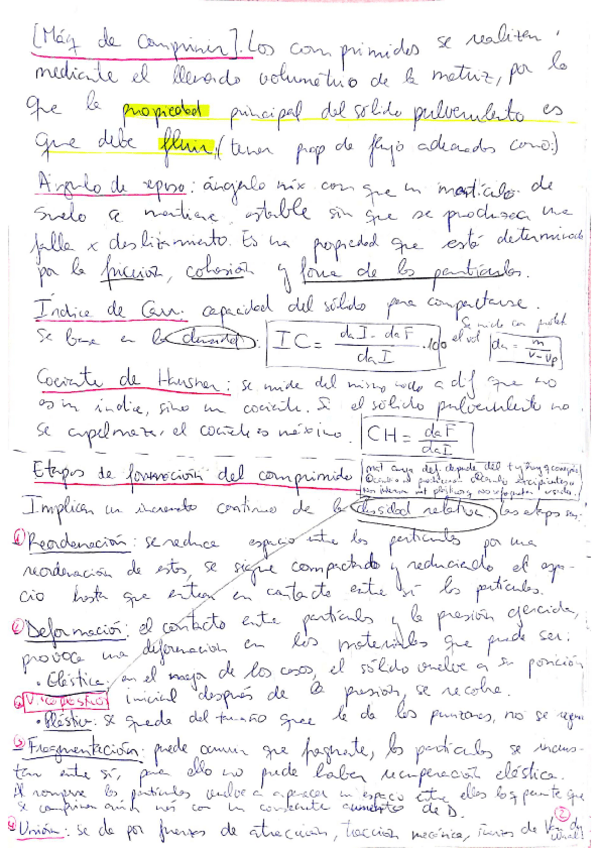 [Máq de Comprimir]. Los comprimidos se realizan
mediante el llenado volumétrico de la matriz, por lo
que la propiedad principal del sólido pulverulento es
que debe fluir. (tener prop de flujo adecuados como:)
Ángulo de reposo: ángulo máx con que un montículo de
suelo se mantiene estable sin que se produzca una
falla x deslizamiento. Es una propiedad que está determinada
por la fricción, cohesión y forma de las partículas.
Índice de Carr: capacidad del sólido para compactarse.
Se mide con
Se basa en la densidad. IC = daI - daF / daI · 100 el vol da = m / V - Vp
Cociente de Hausner: se mide del mismo modo a df que no
es un índice, sino un cociente. Si el sólido pulverulento no
se apelmaza, el cociente es máximo. CH = daF / daI
Etapas de formación del comprimido
Implican un incremento continuo de la densidad relativa. Las etapas son:
① Reordenación: se reduce espacio entre las partículas por una
reordenación de estas, se sigue compactando y reduciendo el espa-
cio hasta que entran en contacto entre sí las partículas.
② Deformación: el contacto entre partículas y la presión ejercida,
provoca una deformación en los materiales que puede ser:
• Elástica: en el mejor de los casos, el sólido vuelve a su posición
inicial después de la presión, se recobra.
• Plástica: se queda del tamaño que le da los punzones, no se
③ Fragmentación: puede ocurrir que fragmente, las partículas se incrus-
tan entre sí, para ello no puede haber recuperación elástica.
Al romperse las partículas vuelve a aparecer un espacio entre ellas lo q permite que
se compriman aún más con un constante aumento de D.
④ Unión: se da por fuerzas de atracción, tracción mecánica, uniones de Van der Waals
②